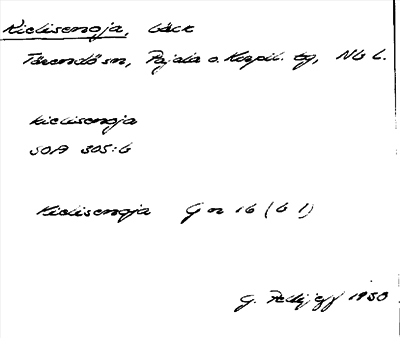 Kielisenoja, bäck
Tärendö sn, Pajala o. Korpil. tg, Nb l.
kielisenoja
SOA 305:6
Kielisenoja G nr 16 (b 1)
G. Pellijeff 1950